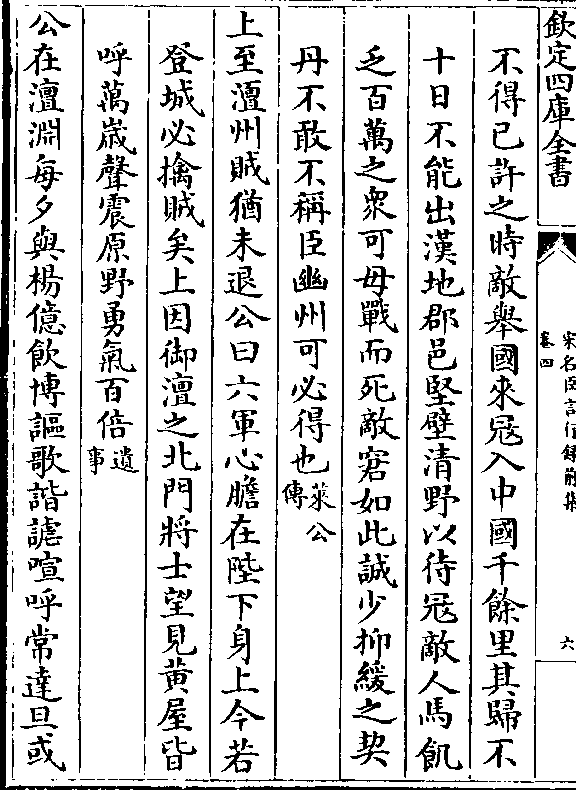 欽定四庫全書
宋名臣言行録前集
卷四
六
不得已許之時敵舉國來冦入中國千餘里其歸不
十日不能出漢地郡邑堅壁清野以待冦敵人馬飢
乏百萬之衆可毋戰而死敵窘如此誠少抑緩之契
丹不敢不稱臣幽州可必得也萊公傳
上至澶州賊猶未退公曰六軍心膽在陛下身上今若
登城必擒賊矣上因御澶之北門將士望見黄屋皆
呼萬歲聲震原野勇氣百倍遺事
公在澶淵每夕與楊億飲博謳歌諧謔喧呼常達旦或